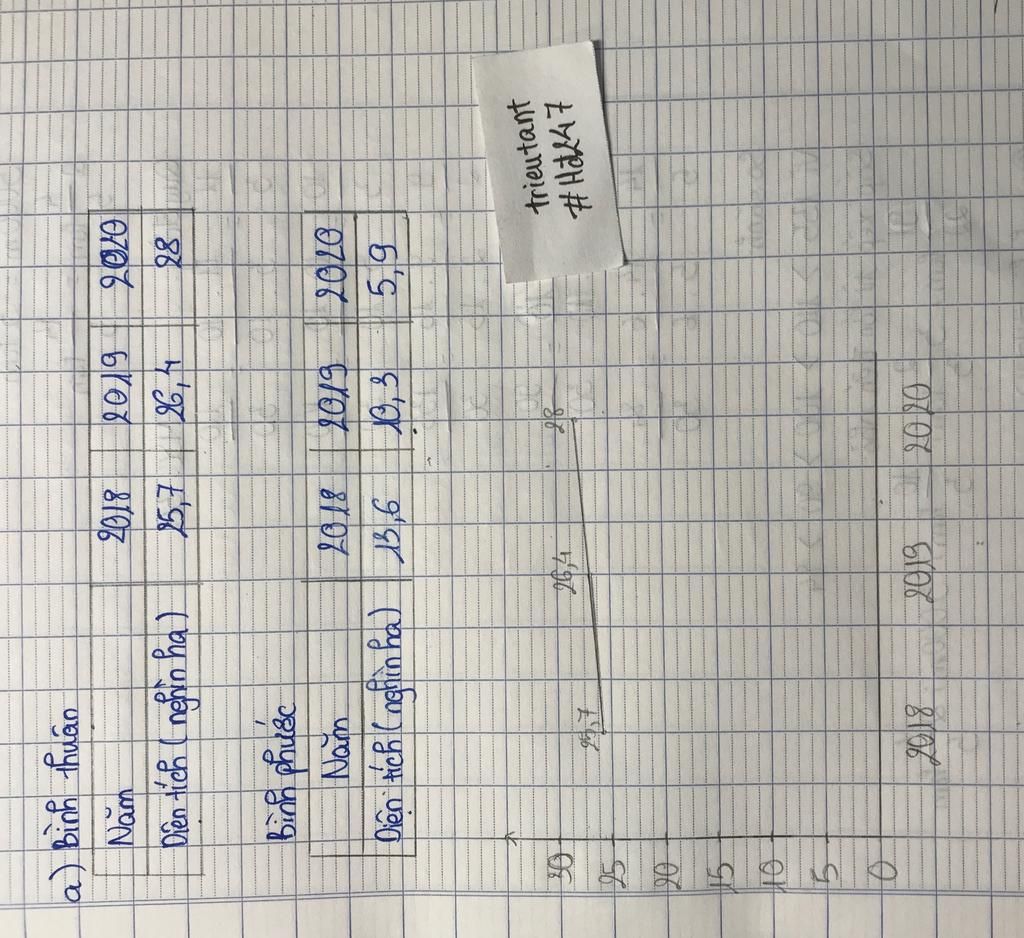 a) Bình thuân
Năm 2018 2019 2020
Diên tích (nghìn ha) 25,7 26,4 28
Bình phước
Năm 2018 2019 2020
Diện tích (nghìn ha) 13,6 10,3 5,9
trieutant
#Hđ247
30
25
20
15
10
5
0
25,7 26,4 28
2018 2019 2020